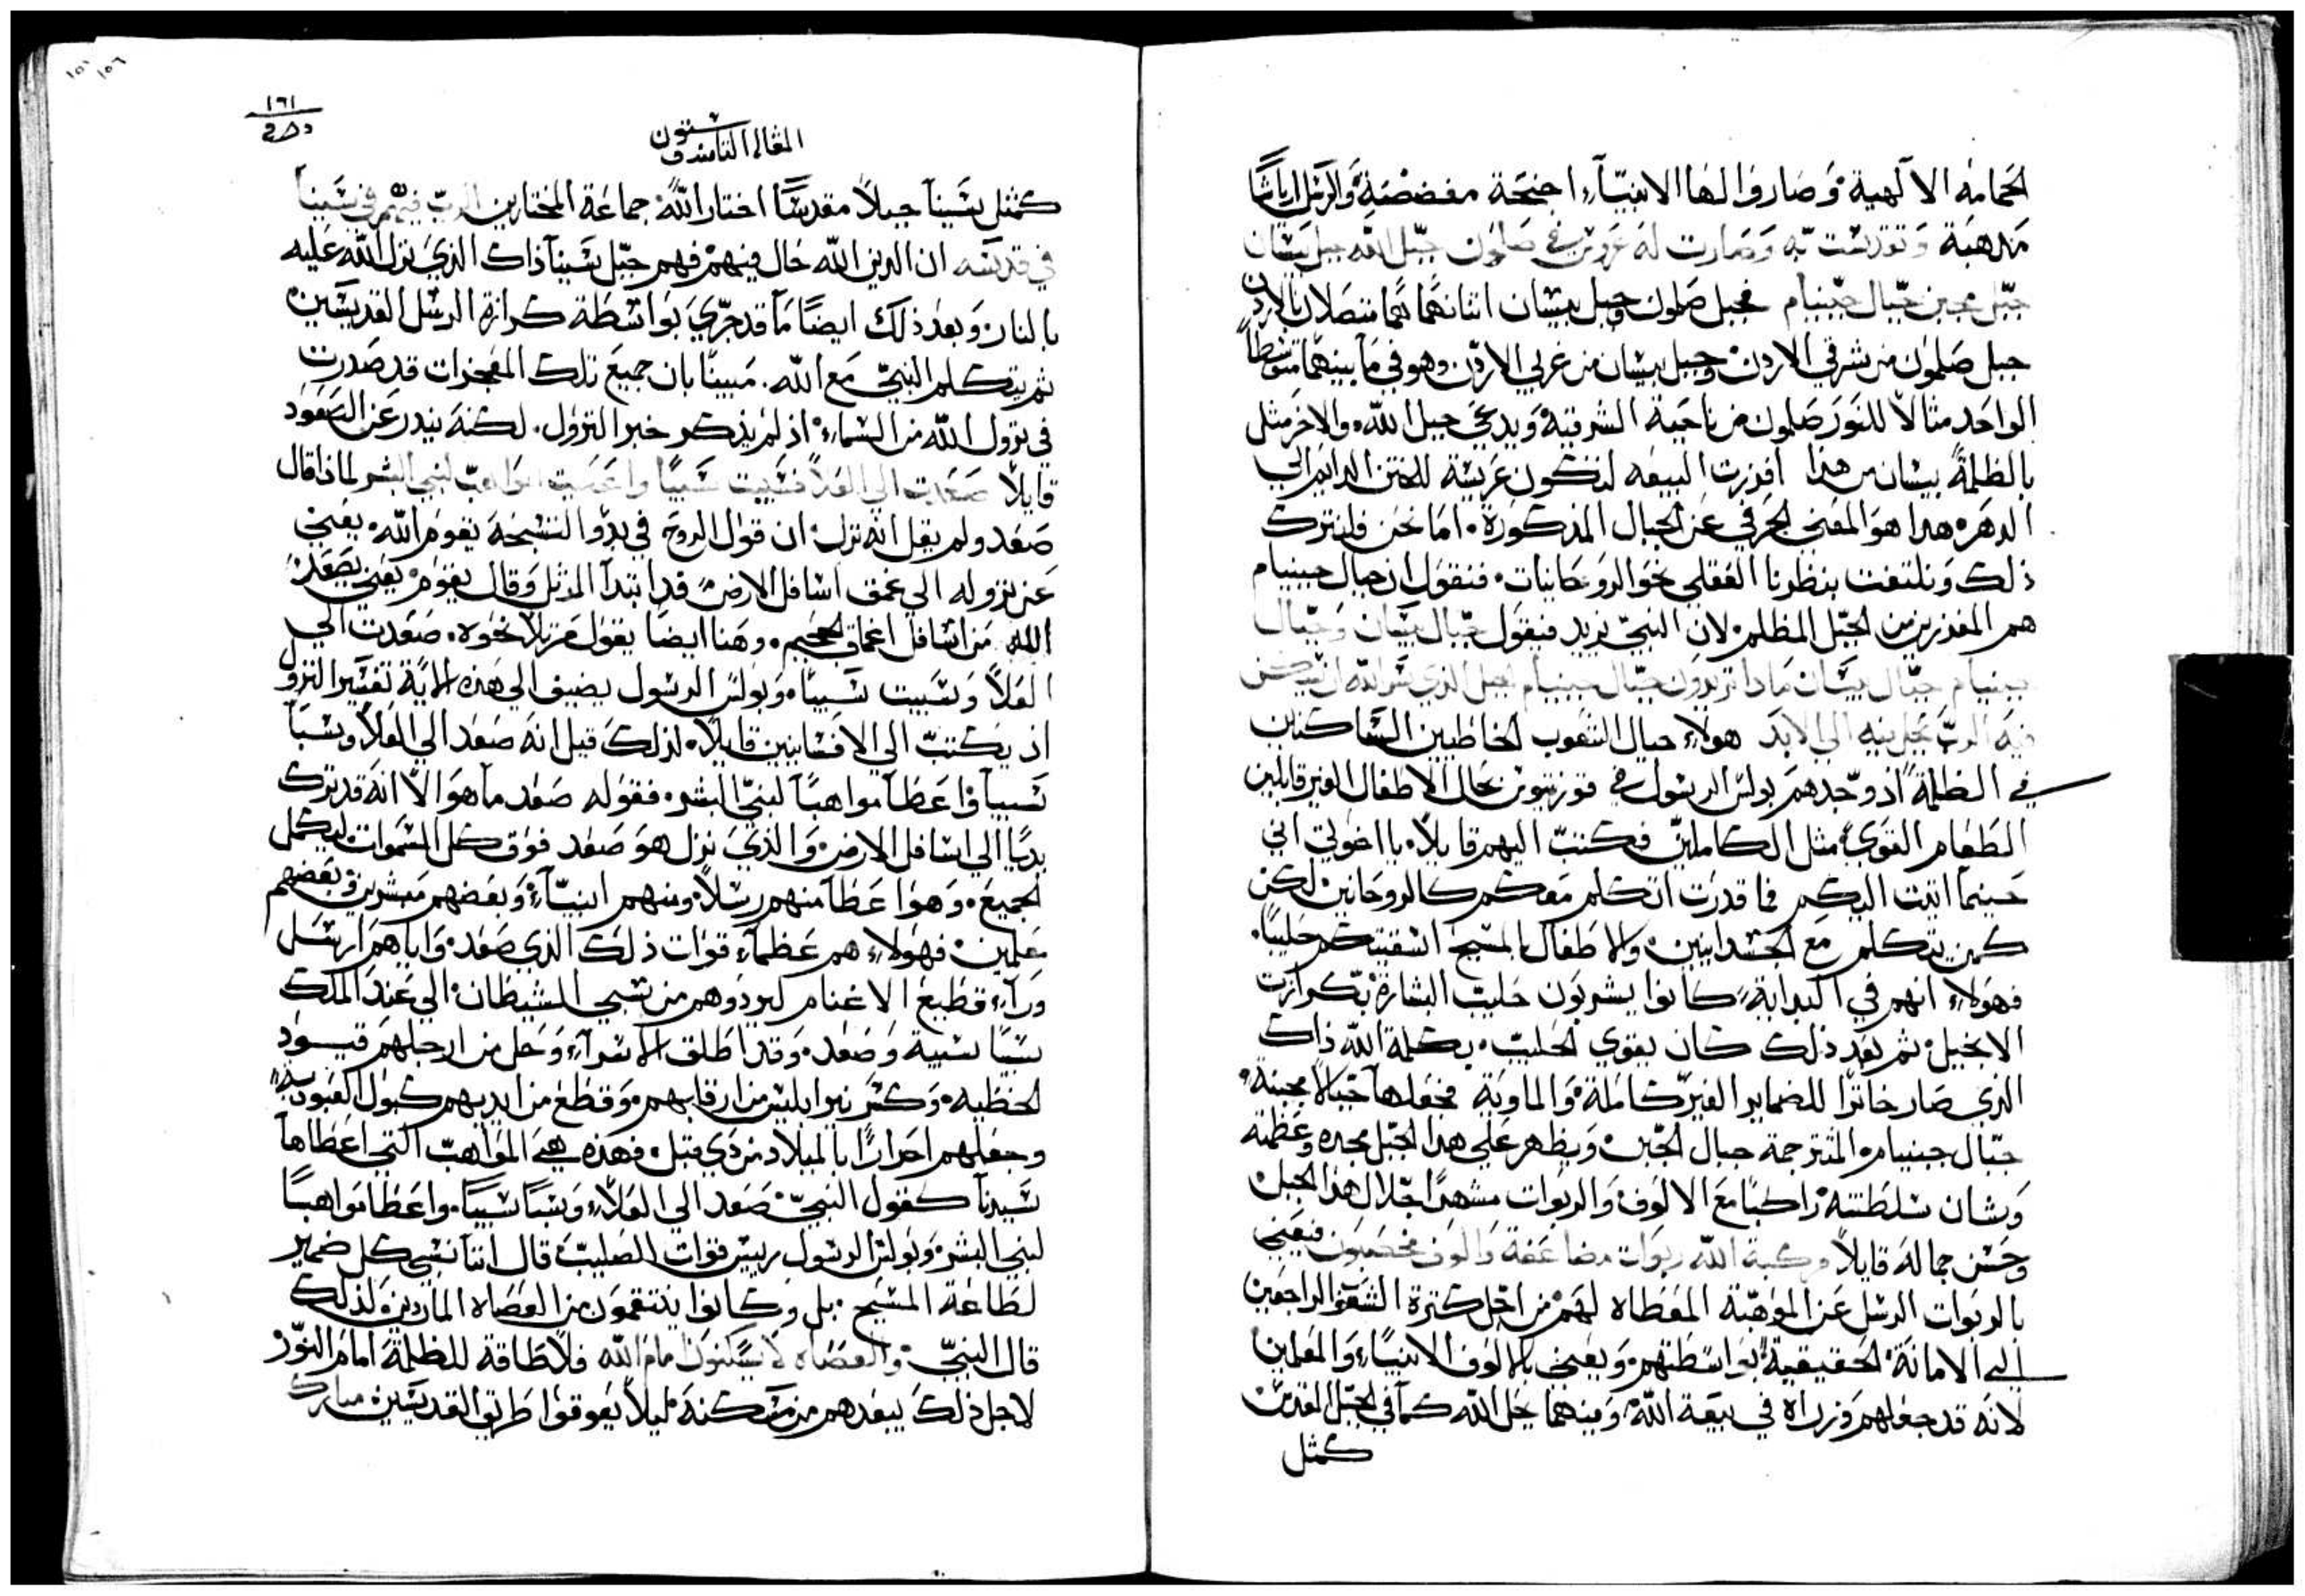 الحمامه الالهية وصاروا لها الانبيآء اجنحة مفضضة والرسل ارياشًا
مذهبة وتقدست به وصارت له عروس في صلمون جبّل الله جبل بيسان
جبّل مجبن جبّال جبنيام فجبل صلمون وجبل بيسان اثنانهما هما متصلان بالاردن
جبل صلمون من شرقي الاردن وجبل بيسان من غربي الاردن وهو في ما بينهما متوسطاً
الواحد مثالاً للنور صلمون من ناحية الشرقية ويدعي جبل الله والاخر مثل
بالظلمة بيسان من هذا افرزت البيعه لتكون عريسة للختن الدايم الي
الدهر هدا هو المعني الحرفي عن الجبال المذكورة اما نحن فلنترك
ذلك ونلتفت بنظرنا العقلي نحو الروحانيات فنقول ان جبال جبنيام
هم المفرزين من الجبل المظلم لان النبي يزيد فيقول جبال بيسان وجبال
جبنيام جبّال بيسان مادا تريدون جبّال جبنيام الجبل الذي سر الله ان يسكن
فيه الربّ يحل فيه الي الابد هولاء جبال الشعوب الخاطيين الساكنين
في الظلمة اذ وجدهم بولس الرسول في قورنتيوس بحال الاطفال الغير قابلين
الطعام القوي مثل الكاملين فكتب اليهم قايلاً يا اخوتي اني
حينما اتيت اليكم فما قدرت اتكلم معكم كالروحانين لكن
كمن يتكلم مع الجسدانيين والاطفال بالمسيح اسقيتكم حليبًا
فهولاء انهم في البداية كانوا يشربون حليب البشارة بكرازت
الانجيل ثم بعد ذلك كان يقوي الحليب بكلمة الله ذاك
الذي صار خاثرًا للضماير الغير كاملة والماوية فجعلها جبالا مجبنة
جبّال جبنيام المترجمة جبال الجبن ويظهر علي هدا الجبل مجده وعظمته
وشان سلطنته راكبًا مع الالوف والربوات مشهرًا اجلال هذا الجبل
وحسن جماله قايلاً مركبة الله ربوات مضاعفة والوف مخصبون فيعني
بالربوات الرسل عن الموهبة المعطاه لهم من اجل كثرة الشعوب الراجعين
الي الامانة الحقيقية بواسطتهم ويعني بالالوف الانبياء والمعلمين
لانه قد جعلهم وزراه في بيعة الله ومنهما يحل الله كما في الجبل المقدس
كمثل
١٥١ ١٥٦
١٦١
المقاله الثامنه وستون
كمثل سينآ جبلاً مقدسًا اختار الله جماعة المختارين الربّ فيهم في سينآ
في قدسه ان الدين الله حال فيهم فهم جبّل سينآ ذاك الذي نزل الله عليه
بالنار وبعد ذلك ايضًا ما قد جري بواسطة كرازة الرسل القديسين
ثم يتكلم النبي مع الله مبينًا بان جميع تلك المعجزات قد صدرت
في نزول الله من السماء اذ لم يذكر خبر النزول لكنه يندر عن الصعود
قايلاً صعدت الي العلا فسبيت سبيًا واعطيت المواهب لبني البشر لماذا قال
صعد ولم يقل انه نزل ان قول الروح في بدو التسبحة يقوم الله يعني
عن نزوله الي عمق اسافل الارض قد ابتدآ المرتل وقال يقوم يعني يصعد
الله من اسافل اعماق الجحيم وهنا ايضًا يقول مرتلاً نحوه صعدت الي
العلآ وسبيت سبيًا وبولس الرسول يضيف الي هذه الاية تفسير النزول
اذ يكتب الي الافسانيين قايلاً لذلك قيل انه صعد الي العلا وسبا
سبيآ واعطا مواهبًا لبني البشر فقوله صعد ما هو الا انه قد نزل
بديًا الي اسافل الارض والذي نزل هو صعد فوق كل السموات ليكمل
الجميع وهو اعطا منهم رسلاً ومنهم انبيآء وبعضهم مبشرين وبعضهم
معلمين فهولاء هم عظمآء قوات ذلك الذي صعد واياهم ارسل
ورآء قطيع الاغنام ليردوهم من سبي الشيطان الي عند الملك
سبًا سبية وصعد وقد اطلق الاسرآء وحل من ارجلهم قيود
الخطيه وكسر نير ابليس من ارقابهم وقطع من ايديهم كبول العبودية
وجعلهم احرارًا بالميلاد من ذي قبل فهذه هي المواهب التي اعطاها
سيدنا كقول النبي صعد الي العلاء وسبا سبيًا واعطا مواهبًا
لبني البشر وبولس الرسول رييس قوات الصليب قال اننا نسبي كل ضمير
لطاعة المسيح بل وكانوا ينتقمون من العصاه الماردين ولذلك
قال النبي والعصاه لا يسكنون امام الله فلا طاقة للظلمة امام النور
لاجل ذلك يبعدهم من مسكنه ليلا يعوقوا طريق القديسين مبارك